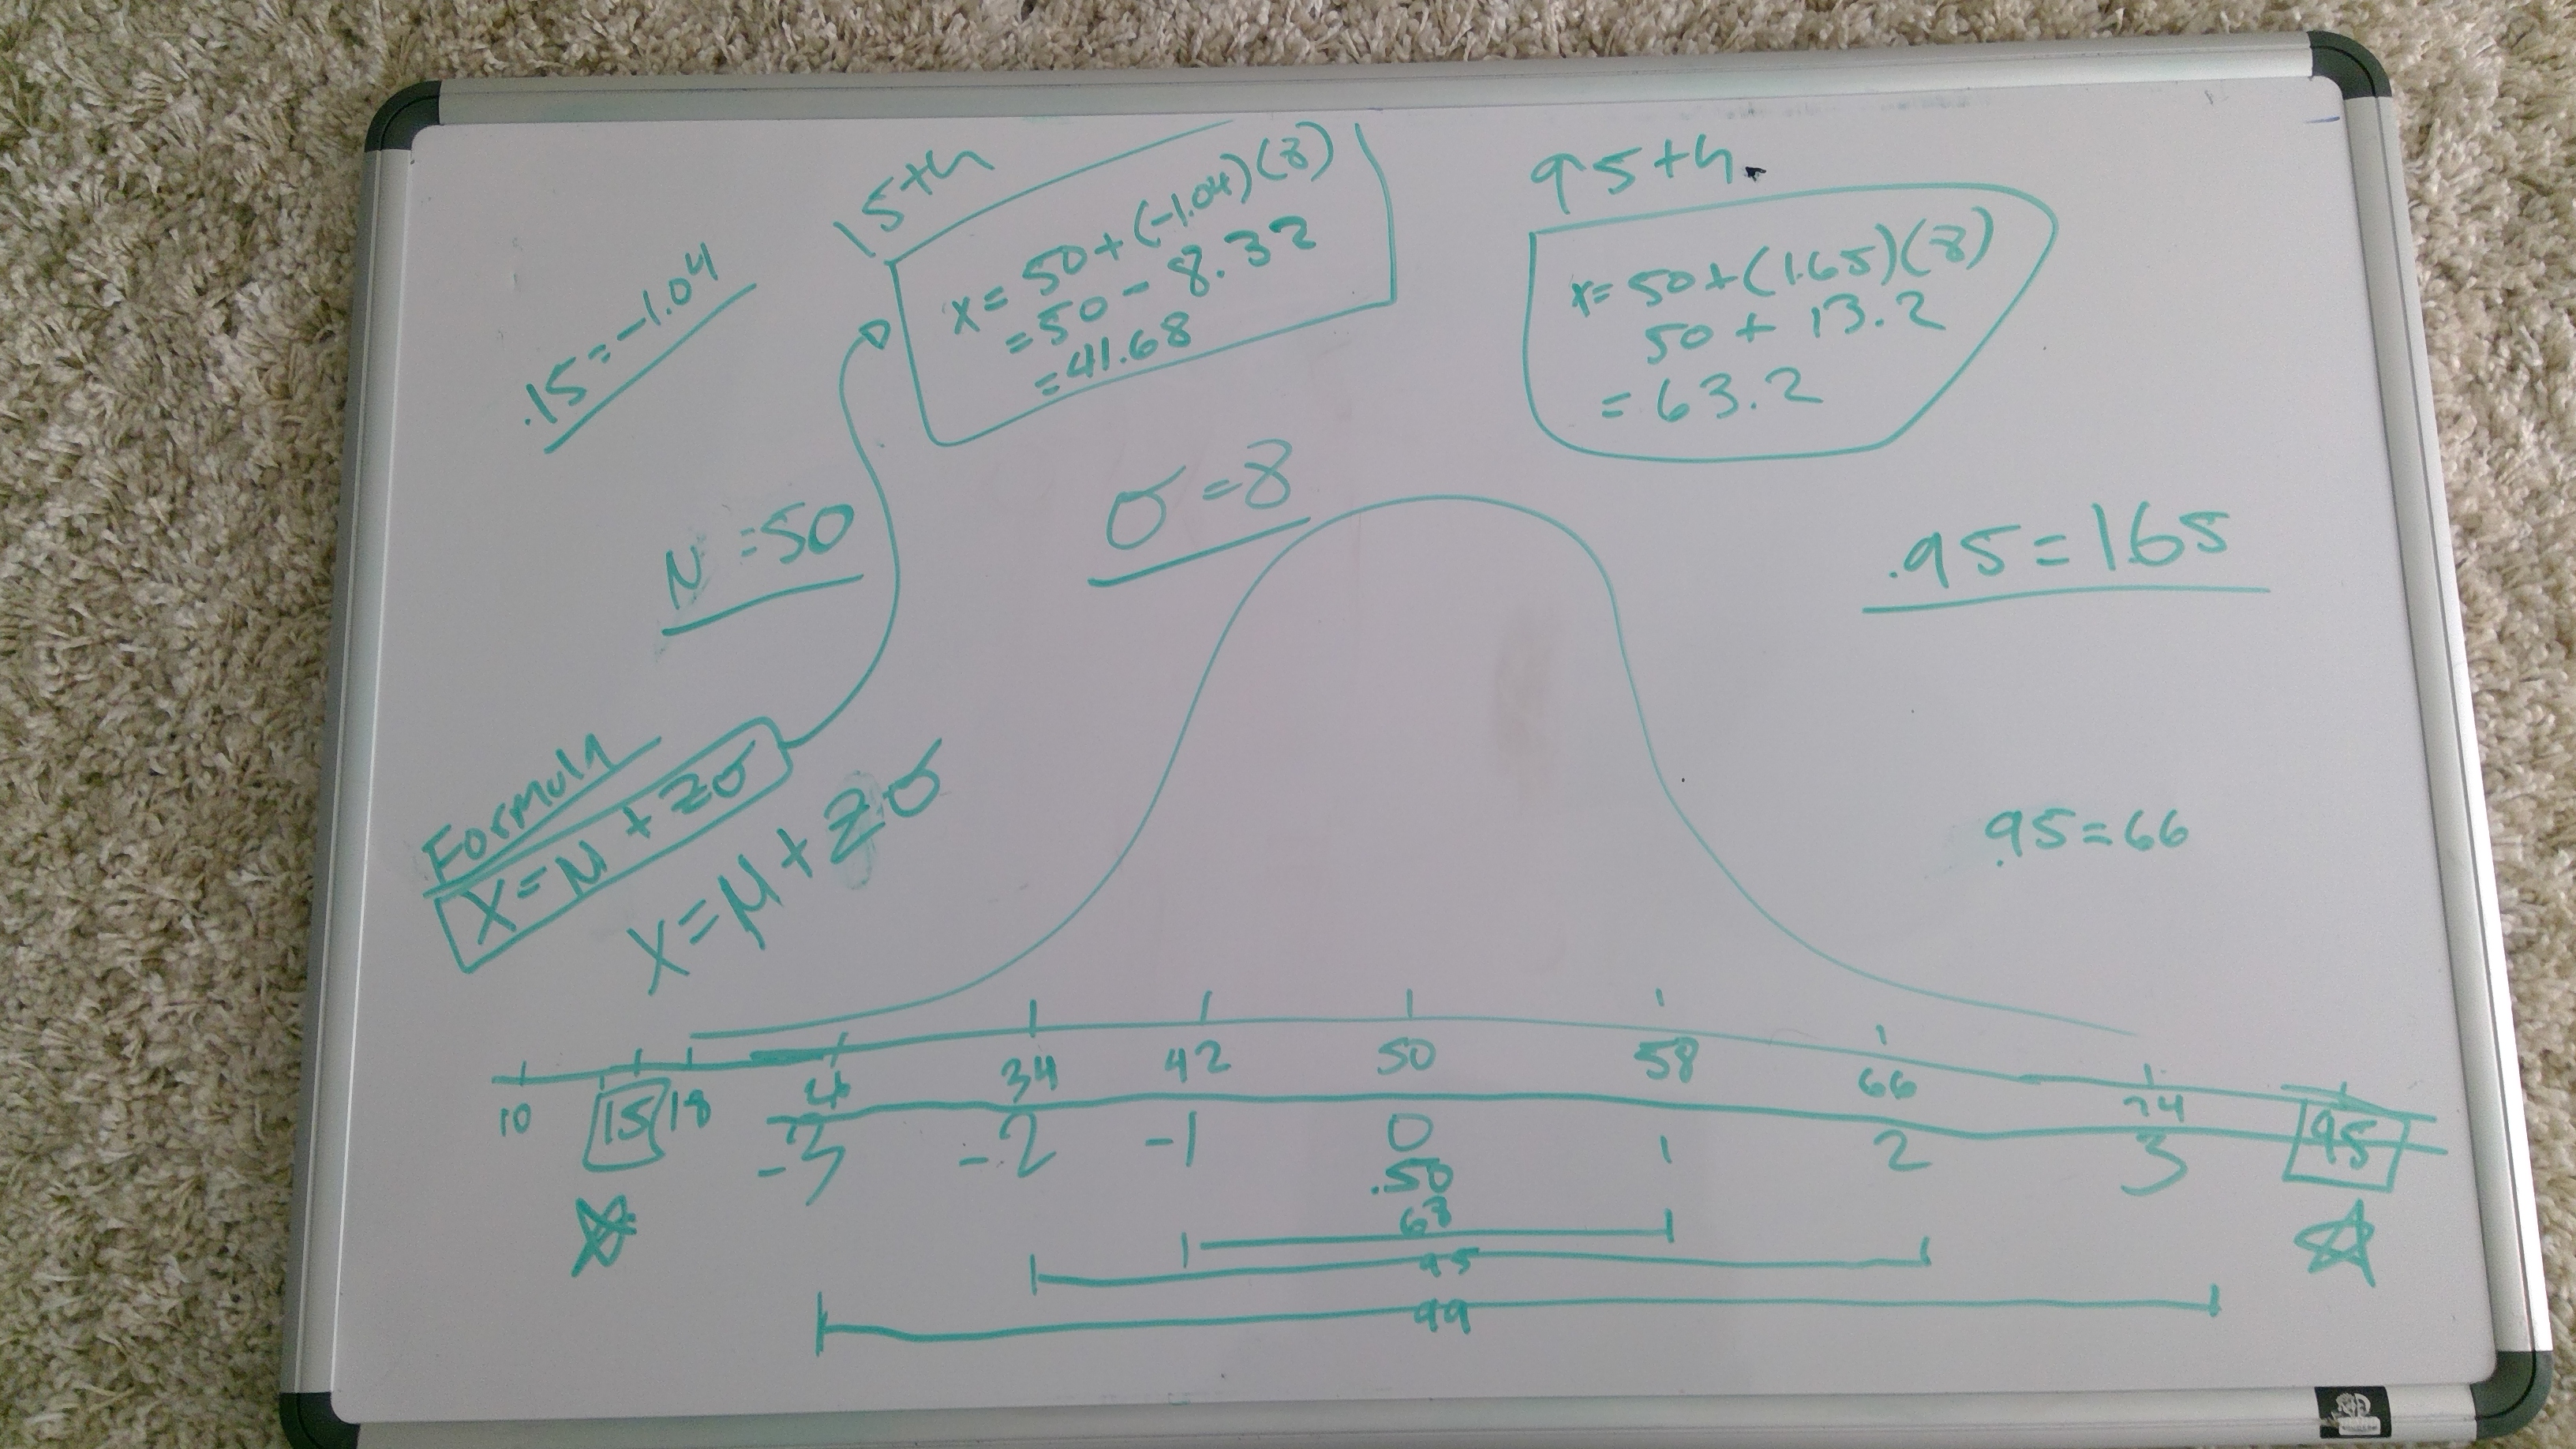 15th
x = 50 + (-1.04)(8)
= 50 - 8.32
= 41.68
95th.
x = 50 + (1.65)(8)
50 + 13.2
= 63.2
.15 = -1.04
μ = 50
σ = 8
.95 = 1.65
.95 = 66
Formula
X = μ + zσ
X = μ + zσ
10 15 18 26 34 42 50 58 66 74 95
-3 -2 -1 0 1 2 3
.50
68
95
99